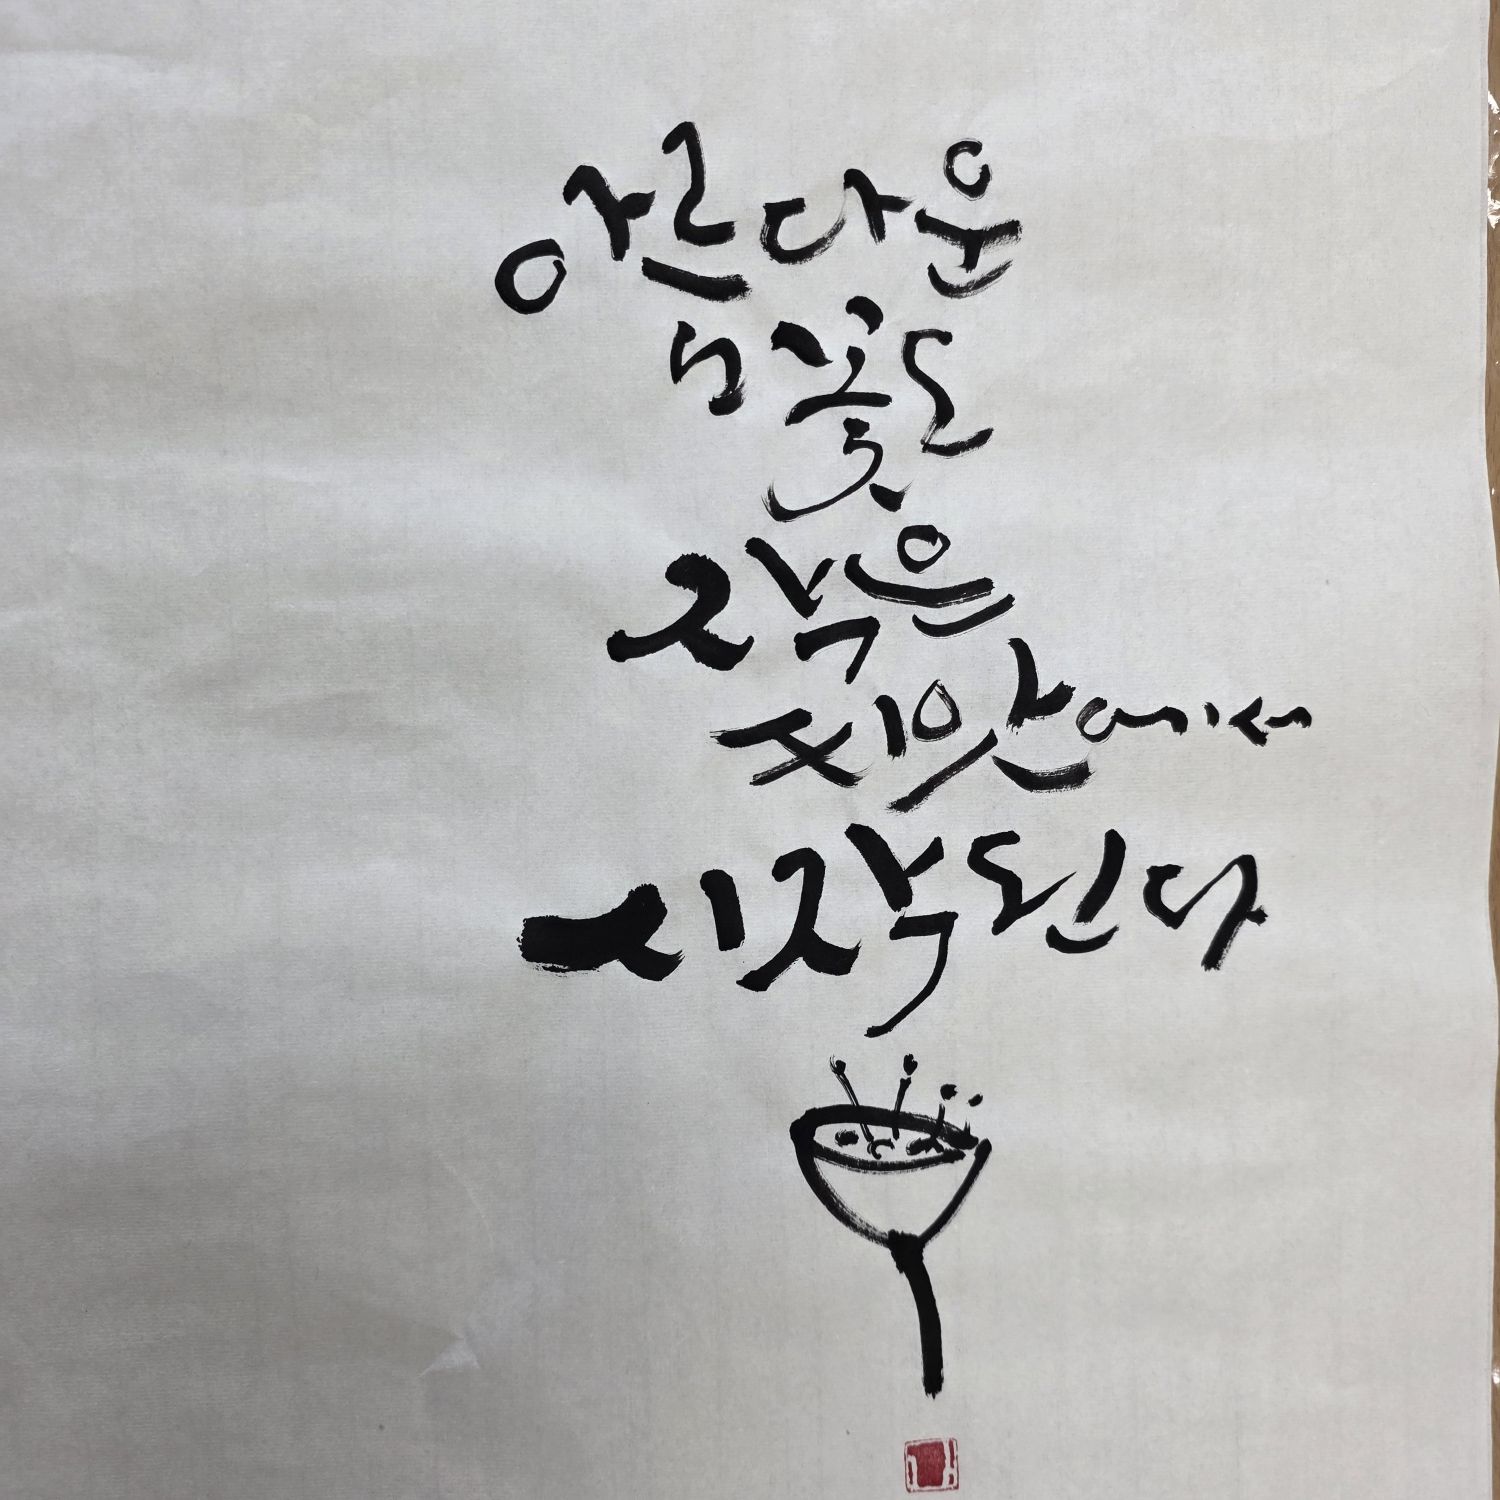 아름다운
꽃도
작은
씨앗에서
시작된다